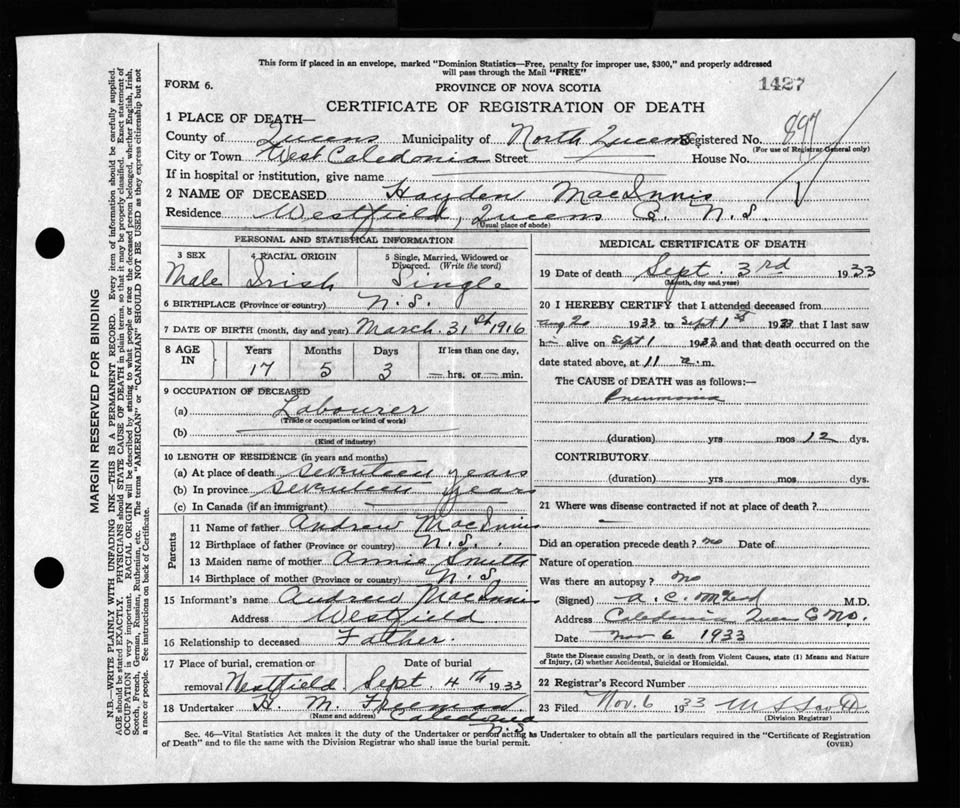 This form if placed in an envelope, marked "Dominion Statistics—Free, penalty for improper use, $300," and properly addressed
will pass through the Mail "FREE"
FORM 6.
PROVINCE OF NOVA SCOTIA
1427
CERTIFICATE OF REGISTRATION OF DEATH
1 PLACE OF DEATH—
County of Queens Municipality of North Queens Registered No. 897
(For use of Registrar General only)
City or Town West Caledonia Street House No.
If in hospital or institution, give name
2 NAME OF DECEASED Hayden MacInnis
Residence Westfield, Queens Co. N.S.
(Usual place of abode)
PERSONAL AND STATISTICAL INFORMATION
3 SEX 4 RACIAL ORIGIN 5 Single, Married, Widowed or
Divorced. (Write the word)
Male Irish Single
6 BIRTHPLACE (Province or country) N.S.
7 DATE OF BIRTH (month, day and year) March 31st 1916
8 AGE IN Years Months Days If less than one day,
17 5 3 — hrs. or — min.
9 OCCUPATION OF DECEASED
(a) Labourer
(Trade or occupation or kind of work)
(b)
(Kind of industry)
10 LENGTH OF RESIDENCE (in years and months)
(a) At place of death seventeen years
(b) In province seventeen years
(c) In Canada (if an immigrant)
Parents
11 Name of father Andrew MacInnis
12 Birthplace of father (Province or country) N.S.
13 Maiden name of mother Annie Smith
14 Birthplace of mother (Province or country) N.S
15 Informant's name Andrew MacInnis
Address Westfield
16 Relationship to deceased Father.
17 Place of burial, cremation or Date of burial
removal Westfield. Sept. 4th 1933
18 Undertaker H. M. Freeman
(Name and address) Caledonia
N.S
MEDICAL CERTIFICATE OF DEATH
19 Date of death Sept. 3rd 1933
(Month, day and year)
20 I HEREBY CERTIFY that I attended deceased from
Aug 20 1933 to Sept 1st 1933 that I last saw
him alive on Sept 1 1933 and that death occurred on the
date stated above, at 11 a.m.
The CAUSE of DEATH was as follows:—
Pneumonia
(duration) yrs mos 12 dys.
CONTRIBUTORY
(duration) yrs. mos. dys.
21 Where was disease contracted if not at place of death?
—
Did an operation precede death? no Date of
Nature of operation
Was there an autopsy? no
(Signed) A. C. McLeod M.D.
Address Caledonia Queens Co NS.
Date Nov 6 1933
State the Disease causing Death, or in death from Violent Causes, state (1) Means and Nature
of Injury, (2) whether Accidental, Suicidal or Homicidal.
22 Registrar's Record Number
23 Filed Nov. 6 1933
(Division Registrar)
Sec. 46—Vital Statistics Act makes it the duty of the Undertaker or person acting as Undertaker to obtain all the particulars required in the "Certificate of Registration
of Death" and to file the same with the Division Registrar who shall issue the burial permit.
(OVER)
MARGIN RESERVED FOR BINDING
N.B.—WRITE PLAINLY WITH UNFADING INK—THIS IS A PERMANENT RECORD. Every item of information should be carefully supplied.
AGE should be stated EXACTLY. PHYSICIANS should STATE CAUSE OF DEATH in plain terms, so that it may be properly classified. Exact statement of
OCCUPATION is very important. RACIAL ORIGIN will be described by stating to what people or race the deceased person belonged, whether English, Irish,
Scotch, French, German, Russian, Ruthenian, etc. The terms "AMERICAN" or "CANADIAN" SHOULD NOT BE USED as they express citizenship but not
a race or people. See instructions on back of Certificate.